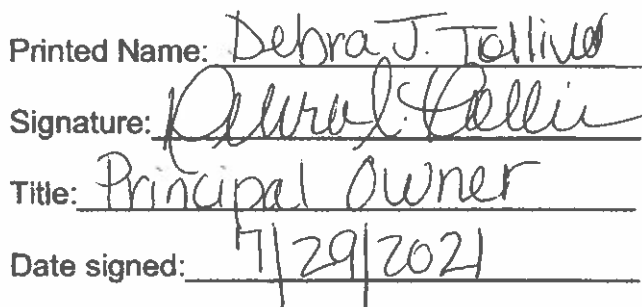 Printed Name: Debra J. Tolliver
Signature:
Title: Principal Owner
Date signed: 7/29/2021